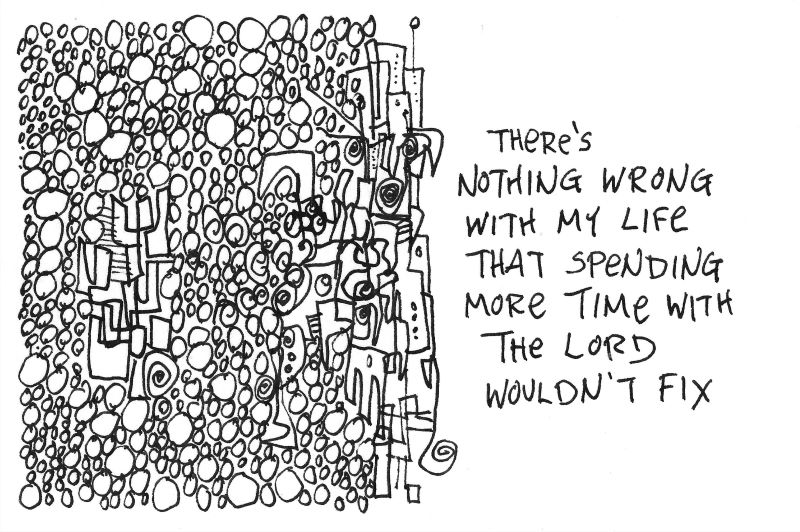 THERE'S
NOTHING WRONG
WITH MY LIFE
THAT SPENDING
MORE TIME WITH
THE LORD
WOULDN'T FIX